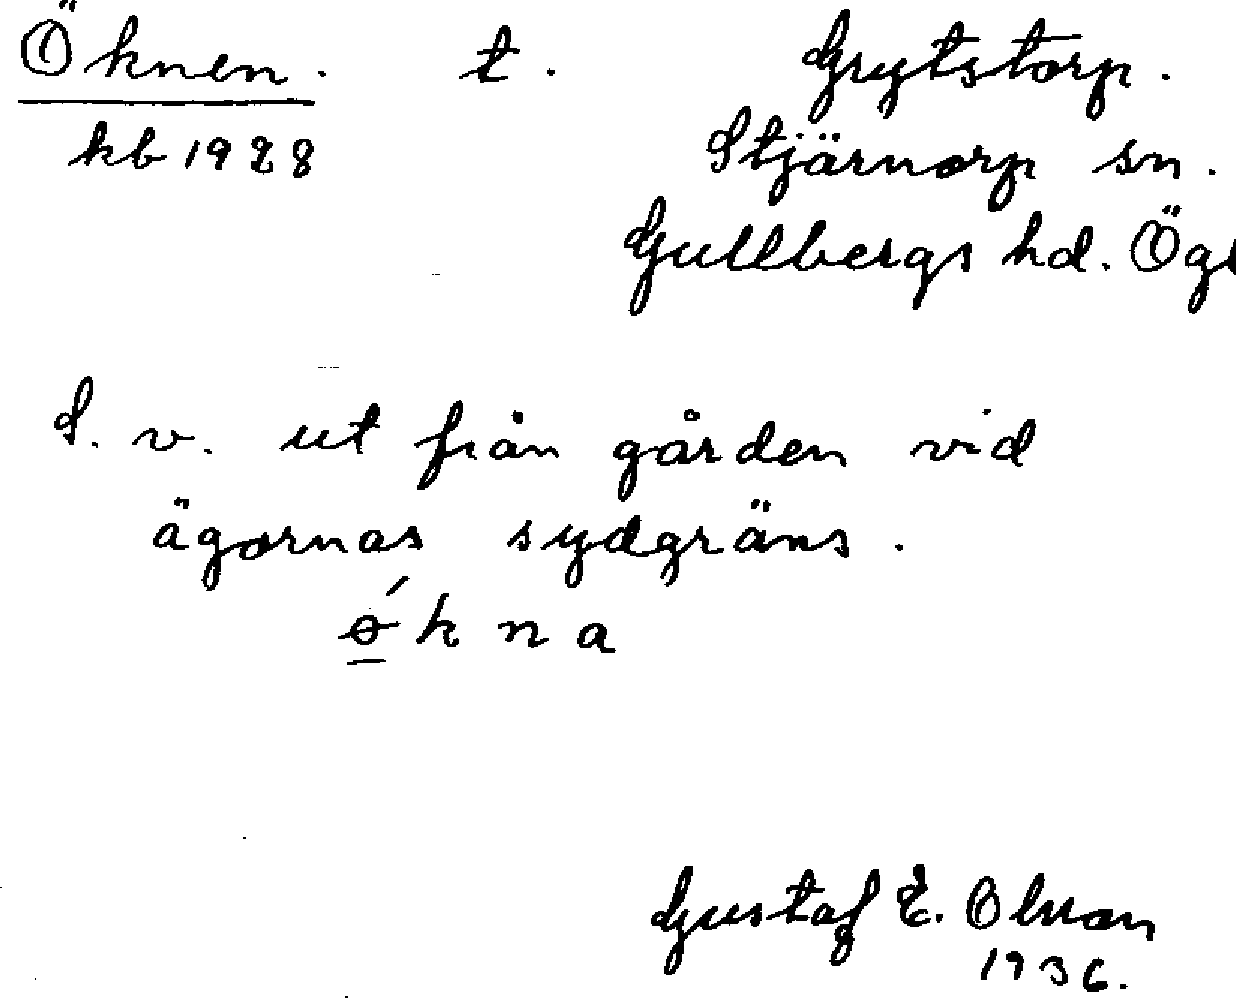 Öknen. t. Grytstorp.
kb 1928 Stjärnorp sn.
Gullbergs hd. Ög
S. v. ut från gården vid
ägornas sydgräns.
ǿkna
Gustaf E. Olsson
1936.